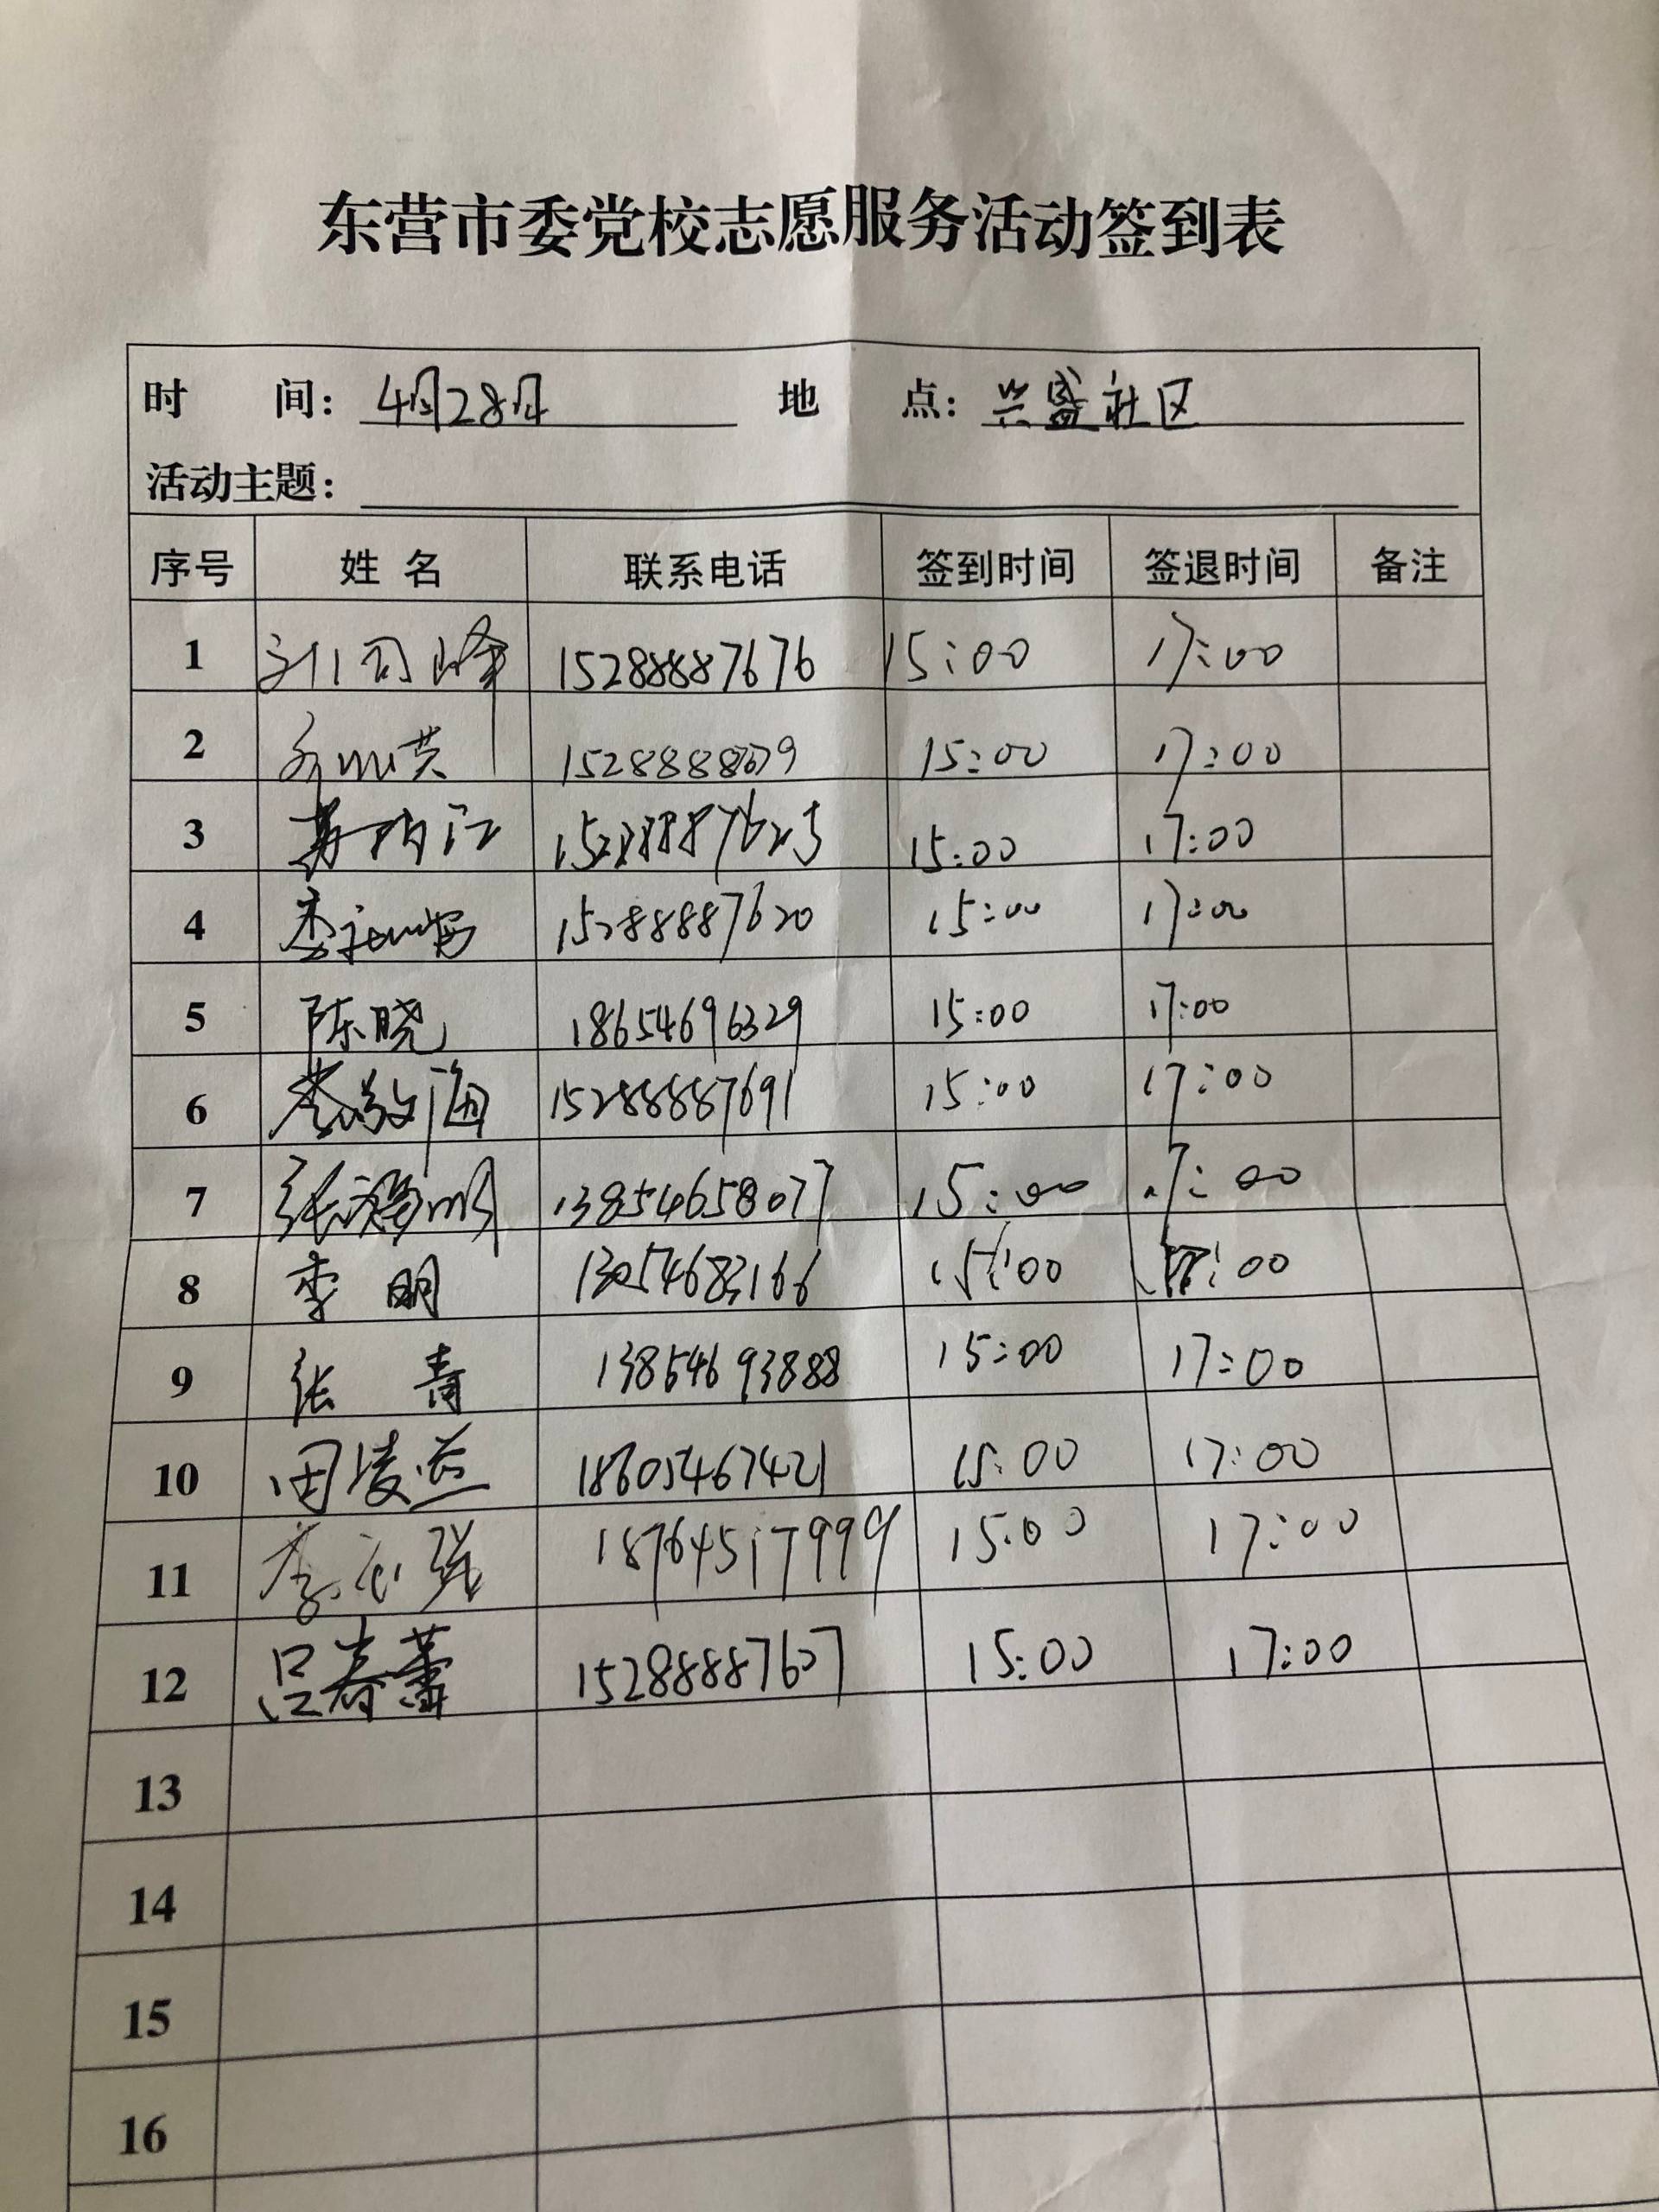 东营市委党校志愿服务活动签到表
时 间: 4月28日 地 点: 兴盛社区
活动主题:
序号 姓 名 联系电话 签到时间 签退时间 备注
1 刘司峰 15288887676 15:00 17:00
2 15:00 17:00
3 15288887625 15:00 17:00
4 15288887620 15:00 17:00
5 陈晓 18654696329 15:00 17:00
6 15288887691 15:00 17:00
7 13854658077 15:00 17:00
8 李明 13054683166 15:00 17:00
9 张青 13854693888 15:00 17:00
10 田凌燕 18605467421 15:00 17:00
11 李永强 18764517999 15:00 17:00
12 吕春蕾 15288887607 15:00 17:00
13
14
15
16